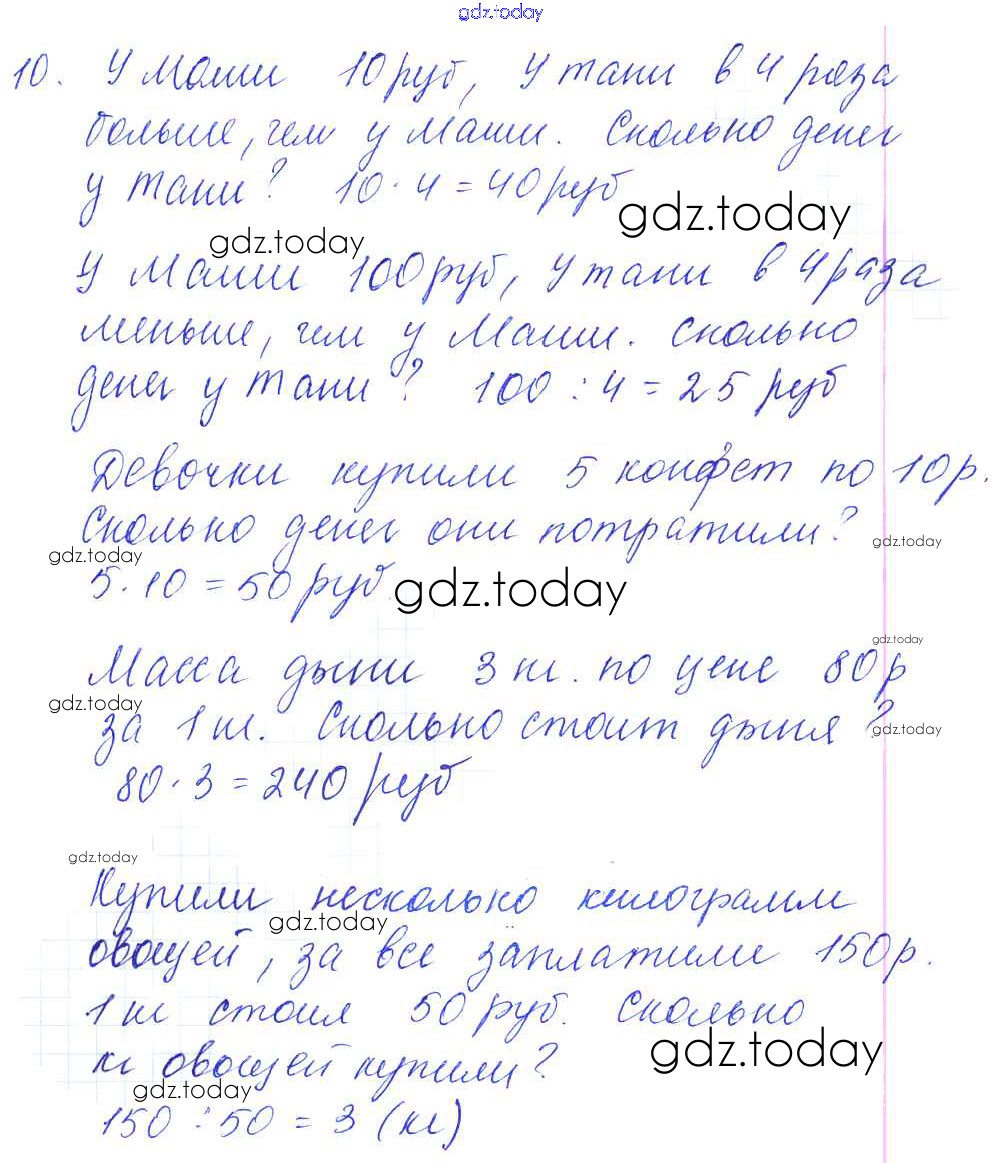 gdz.today
10. У Маши 10 руб, у Тани в 4 раза
больше, чем у Маши. Сколько денег
у Тани? 10 · 4 = 40 руб
gdz.today
gdz.today
У Маши 100 руб, у Тани в 4 раза
меньше, чем у Маши. Сколько
денег у Тани? 100 : 4 = 25 руб
Девочки купили 5 конфет по 10 р.
Сколько денег они потратили?
gdz.today
gdz.today
5 · 10 = 50 руб.
gdz.today
gdz.today
Масса дыни 3 кг. по цене 80 р
gdz.today
за 1 кг. Сколько стоит дыня?
gdz.today
80 · 3 = 240 руб
gdz.today
Купили несколько килограмм
gdz.today
овощей, за все заплатили 150 р.
1 кг стоил 50 руб. Сколько
кг овощей купили?
gdz.today
gdz.today
150 : 50 = 3 (кг)